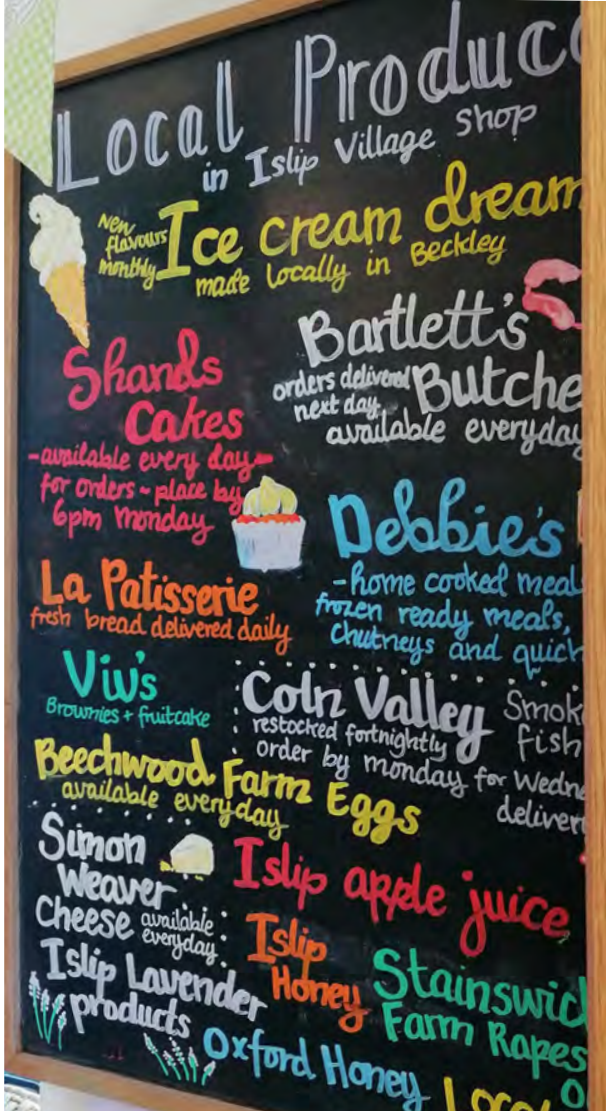 Local Produc
in Islip Village Shop
New
flavours
monthly
Ice cream dream
made locally in Beckley
Bartlett's
orders delivered
next day
Butche
available everyday
Shands
Cakes
-available every day-
for orders ~ place by
6pm Monday
Debbie's
-home cooked meal
frozen ready meals,
chutneys and quich
La Patisserie
fresh bread delivered daily
Viv's
Brownies + fruitcake
Coln Valley
Smok
fish
restocked fortnightly
order by monday for Wedne
deliver
Beechwood Farm Eggs
available everyday
Simon
Weaver
Cheese
available
everyday
Islip apple juice
Islip
Honey
Stainswic
Farm Rapes
O
Islip Lavender
products
Oxford Honey
Loca